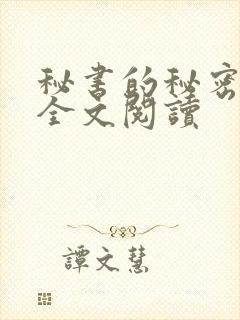 秘书的秘密
全文閱讀
譚文慧